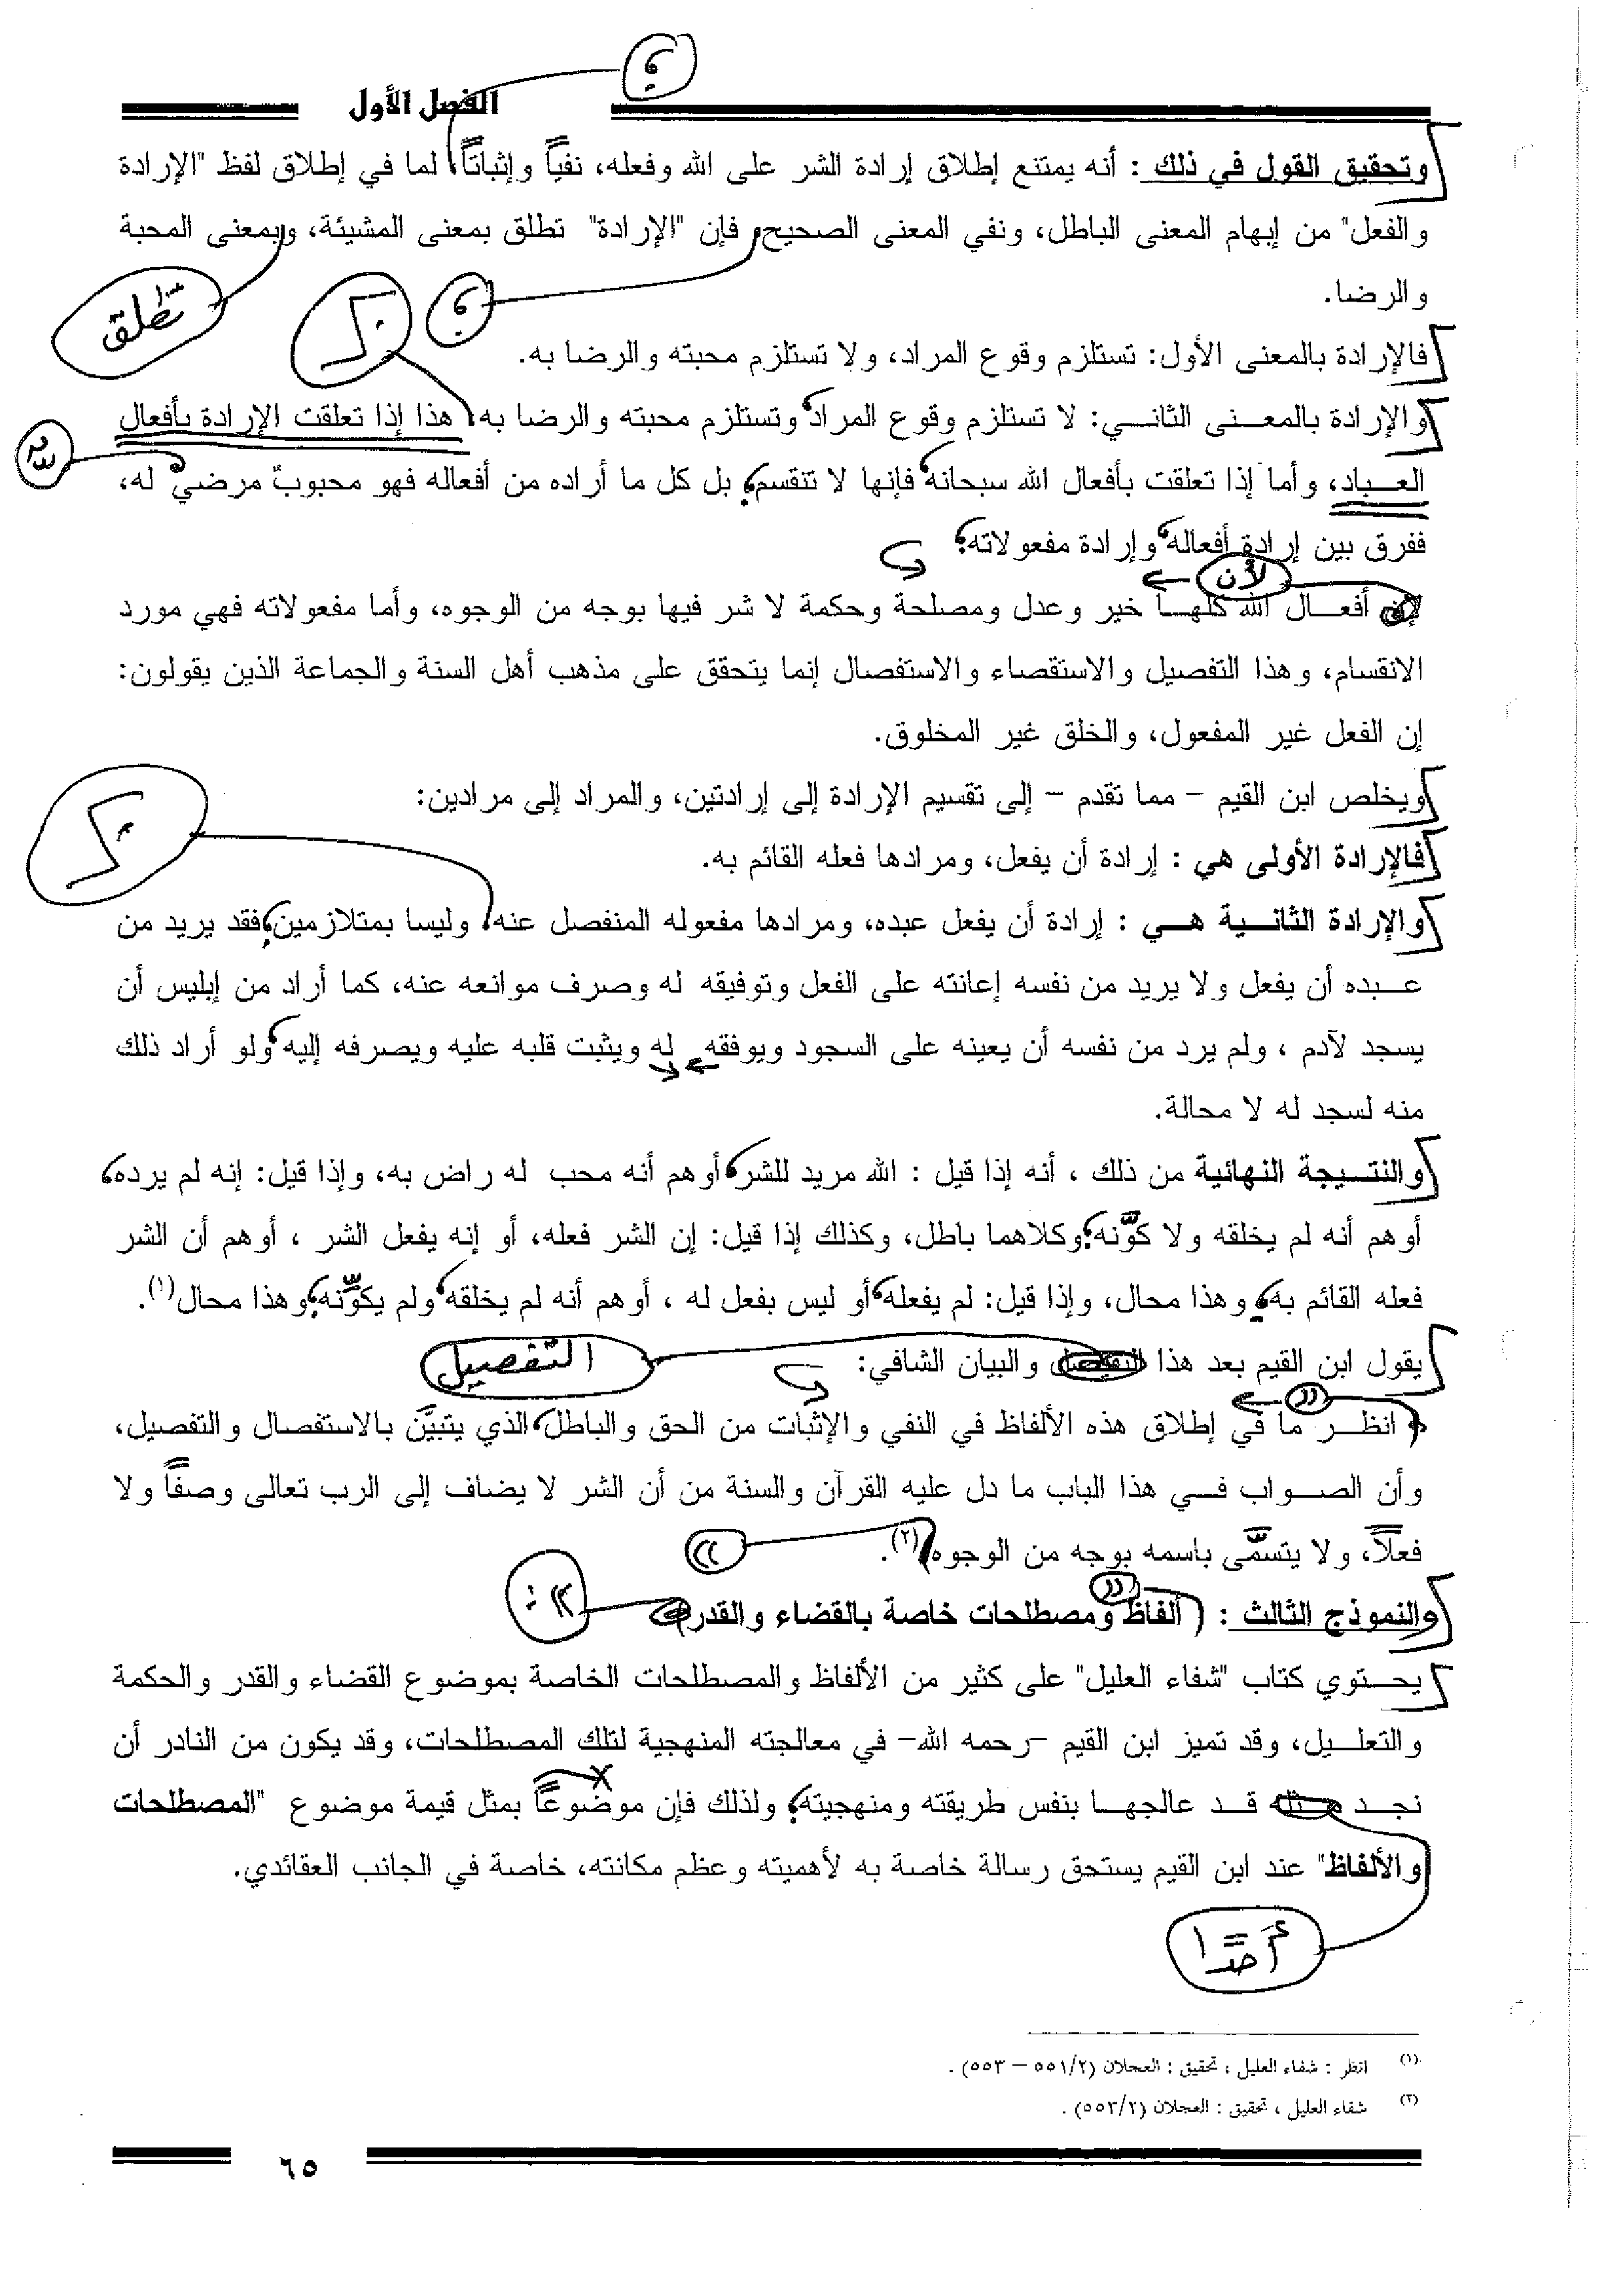 الفصل الأول
وتحقيق القول في ذلك : أنه يمتنع إطلاق إرادة الشر على الله وفعله، نفياً وإثباتاً، لما في إطلاق لفظ "الإرادة
والفعل" من إيهام المعنى الباطل، ونفي المعنى الصحيح، فإن "الإرادة" تطلق بمعنى المشيئة، وبمعنى المحبة
تطلق
والرضا.
فالإرادة بالمعنى الأول: تستلزم وقوع المراد، ولا تستلزم محبته والرضا به.
والإرادة بالمعنى الثاني: لا تستلزم وقوع المراد، وتستلزم محبته والرضا به، هذا إذا تعلقت الإرادة بأفعال
العباد، وأما إذا تعلقت بأفعال الله سبحانه، فإنها لا تنقسم، بل كل ما أراده من أفعاله فهو محبوبٌ مرضيٌ له،
ففرق بين إرادة أفعاله، وإرادة مفعولاته؛
لأن
أفعال الله كلها خير وعدل ومصلحة وحكمة لا شر فيها بوجه من الوجوه، وأما مفعولاته فهي مورد
الانقسام، وهذا التفصيل والاستقصاء والاستفصال إنما يتحقق على مذهب أهل السنة والجماعة الذين يقولون:
إن الفعل غير المفعول، والخلق غير المخلوق.
ويخلص ابن القيم – مما تقدم – إلى تقسيم الإرادة إلى إرادتين، والمراد إلى مرادين:
فالإرادة الأولى هي : إرادة أن يفعل، ومرادها فعله القائم به.
والإرادة الثانية هي : إرادة أن يفعل عبده، ومرادها مفعوله المنفصل عنه، وليسا بمتلازمين، فقد يريد من
عبده أن يفعل ولا يريد من نفسه إعانته على الفعل وتوفيقه له وصرف موانعه عنه، كما أراد من إبليس أن
يسجد لآدم ، ولم يرد من نفسه أن يعينه على السجود ويوفقه له ويثبت قلبه عليه ويصرفه إليه، ولو أراد ذلك
منه لسجد له لا محالة.
والنتيجة النهائية من ذلك ، أنه إذا قيل : الله مريد للشر، أوهم أنه محب له راض به، وإذا قيل: إنه لم يرده،
أوهم أنه لم يخلقه ولا كوَّنه؛ وكلاهما باطل، وكذلك إذا قيل: إن الشر فعله، أو إنه يفعل الشر ، أوهم أن الشر
فعله القائم به، وهذا محال، وإذا قيل: لم يفعله، أو ليس بفعل له ، أوهم أنه لم يخلقه، ولم يكوِّنه؛ وهذا محال(١).
يقول ابن القيم بعد هذا والبيان الشافي:
التفصيل
انظر ما في إطلاق هذه الألفاظ في النفي والإثبات من الحق والباطل، الذي يتبيَّن بالاستفصال والتفصيل،
وأن الصواب في هذا الباب ما دل عليه القرآن والسنة من أن الشر لا يضاف إلى الرب تعالى وصفاً ولا
فعلاً، ولا يتسمَّى باسمه بوجه من الوجوه(٢).
والنموذج الثالث : (ألفاظ ومصطلحات خاصة بالقضاء والقدر)
يحتوي كتاب "شفاء العليل" على كثير من الألفاظ والمصطلحات الخاصة بموضوع القضاء والقدر والحكمة
والتعليل، وقد تميز ابن القيم –رحمه الله– في معالجته المنهجية لتلك المصطلحات، وقد يكون من النادر أن
نجد قد عالجها بنفس طريقته ومنهجيته؛ ولذلك فإن موضوعاً بمثل قيمة موضوع "المصطلحات
والألفاظ" عند ابن القيم يستحق رسالة خاصة به لأهميته وعظم مكانته، خاصة في الجانب العقائدي.
أحدًا
(١) انظر : شفاء العليل ، تحقيق : العجلان (٥٥١/٢ – ٥٥٣) .
(٢) شفاء العليل ، تحقيق : العجلان (٥٥٣/٢) .
٦٥